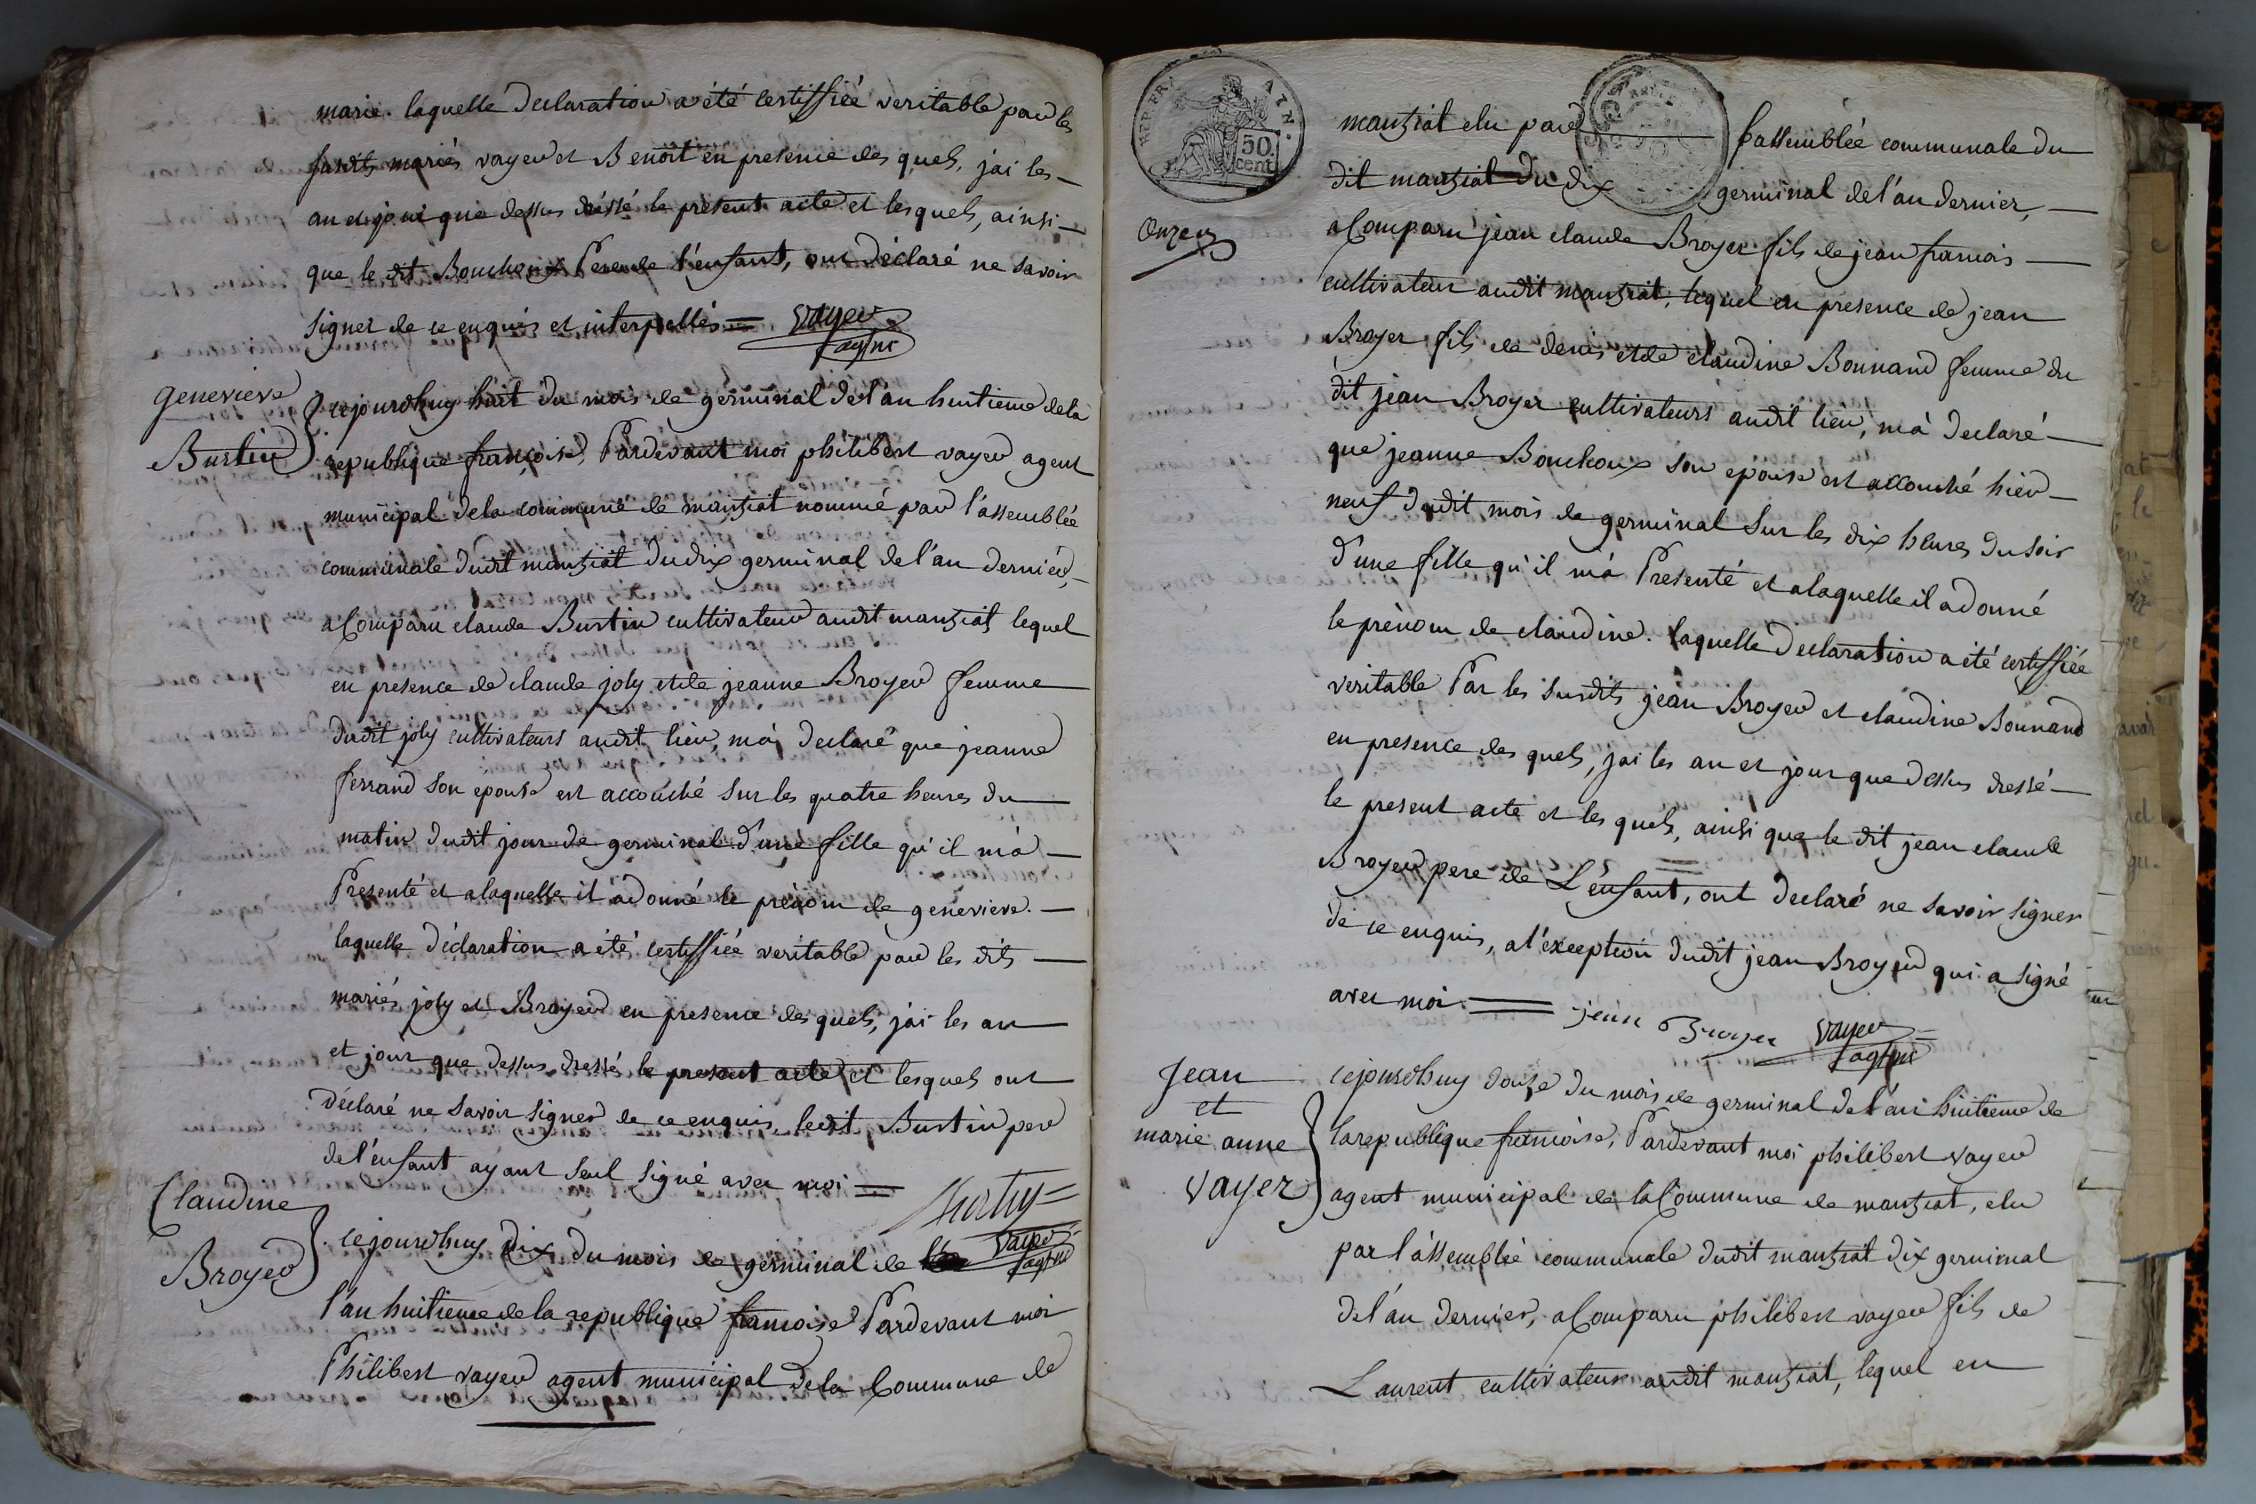 marie. laquelle declaration a été certiffiée veritable par les
susdits mariés vayer et Benoit en presence des quels, j'ai les
an et jour que dessus dréssé le présent acte et lesquels, ainsi
que le dit Bouchoux Pere de l'enfant, ont déclaré ne savoir
signer de ce enquis et interpellés = vayer
agt mc
genevieve
Burtin
cejourdhuy huit du mois de germinal de l'an huitieme de la
republique françoise, Pardevant moi philibert vayer agent
municipal de la commune de manziat nommé par l'assemblée
communale dudit manziat du dix germinal de l'an dernier,
a Comparu claude Burtin cultivateur audit manziat, lequel
en presence de claude joly et de jeanne Broyer femme
dudit joly cultivateurs audit lieu, m'a declaré que jeanne
ferrand son epouse est accouché sur les quatre heures du
matin dudit jour de germinal d'une fille qu'il m'a
Presenté et a laquelle il a donné le prénom de genevieve.
laquelle déclaration a été certiffiée veritable par les dits
mariés joly et Broyer en presence des quels, j'ai les an
et jour que dessus dressé le present acte et lesquels ont
déclaré ne savoir signer de ce enquis, ledit Burtin pere
de l'enfant ayant seul signé avec moi =
vayer
agt mc
Claudine
Broyer
cejourdhuy dix du mois de germinal de
l'an huitieme de la republique francoise Pardevant moi
Philibert vayer agent municipal de la Commune de
REP. FRA. 50 cent
AIN.
Onze
manziat elu par l'assemblée communale du
dit manziat du dix germinal de l'an dernier,
a Comparu jean claude Broyer fils de jean francois
cultivateur audit manziat, lequel en presence de jean
Broyer fils de denis et de claudine Bonnand femme du
dit jean Broyer cultivateurs audit lieu, m'a declaré
que jeanne Bouchoux son epouse est accouché hier
neuf dudit mois de germinal sur les dix heures du soir
d'une fille qu'il m'a Presenté et a laquelle il a donné
le prénom de claudine. laquelle declaration a été certiffiée
veritable Par les susdits jean Broyer et claudine Bonnand
en presence des quels, j'ai les an et jour que dessus dressé
le present acte et les quels, ainsi que le dit jean claude
Broyer pere de L'enfant, ont declaré ne savoir signer
de ce enquis, a l'exception dudit jean Broyer qui a signé
avec moi. = jean Broyer vayer
agt mc
Jean
et
marie anne
vayer
cejourdhuy douze du mois de germinal de l'an huitieme de
la republique francoise, Pardevant moi philibert vayer
agent municipal de la Commune de manziat, elu
par l'assemblée communale dudit manziat dix germinal
de l'an dernier, a Comparu philibert vayer fils de
Laurent cultivateur audit manziat, lequel en